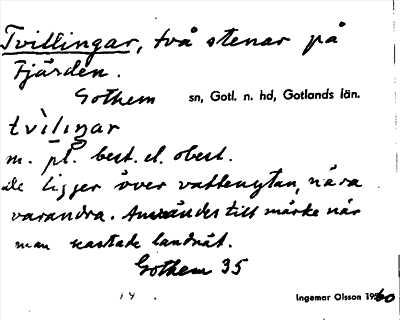 Tvillingar, två stenar på
Fjärden.
Gothem sn, Gotl. n. hd, Gotlands län.
tvìliŋar
m. pl. best. el. obest.
De ligger över vattenytan, nära
varandra. Användes till märke när
man kastade landnät.
Gothem 35
14. Ingemar Olsson 1960